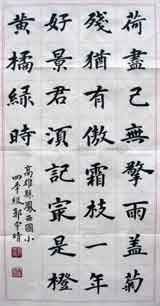 荷盡已無擎雨蓋菊
殘猶有傲霜枝一年
好景君湏記㝡是橙
黃橘綠時
高雄縣鳳西國小
四年級